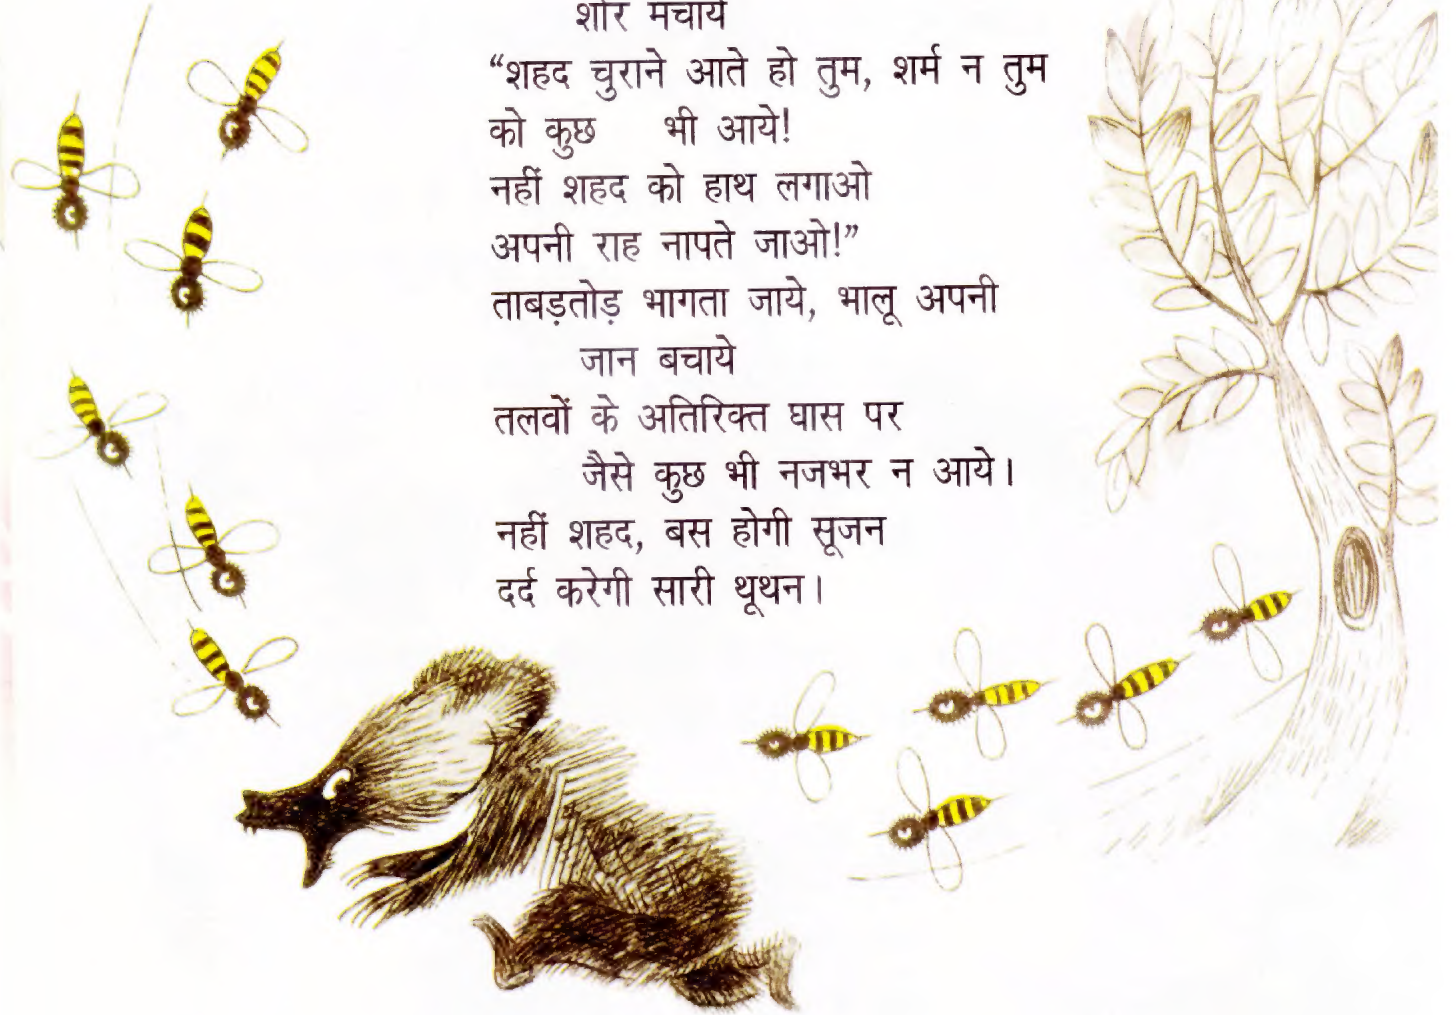 शोर मचाये
“शहद चुराने आते हो तुम, शर्म न तुम
को कुछ भी आये!
नहीं शहद को हाथ लगाओ
अपनी राह नापते जाओ!”
ताबड़तोड़ भागता जाये, भालू अपनी
जान बचाये
तलवों के अतिरिक्त घास पर
जैसे कुछ भी नजभर न आये।
नहीं शहद, बस होगी सूजन
दर्द करेगी सारी थूथन।